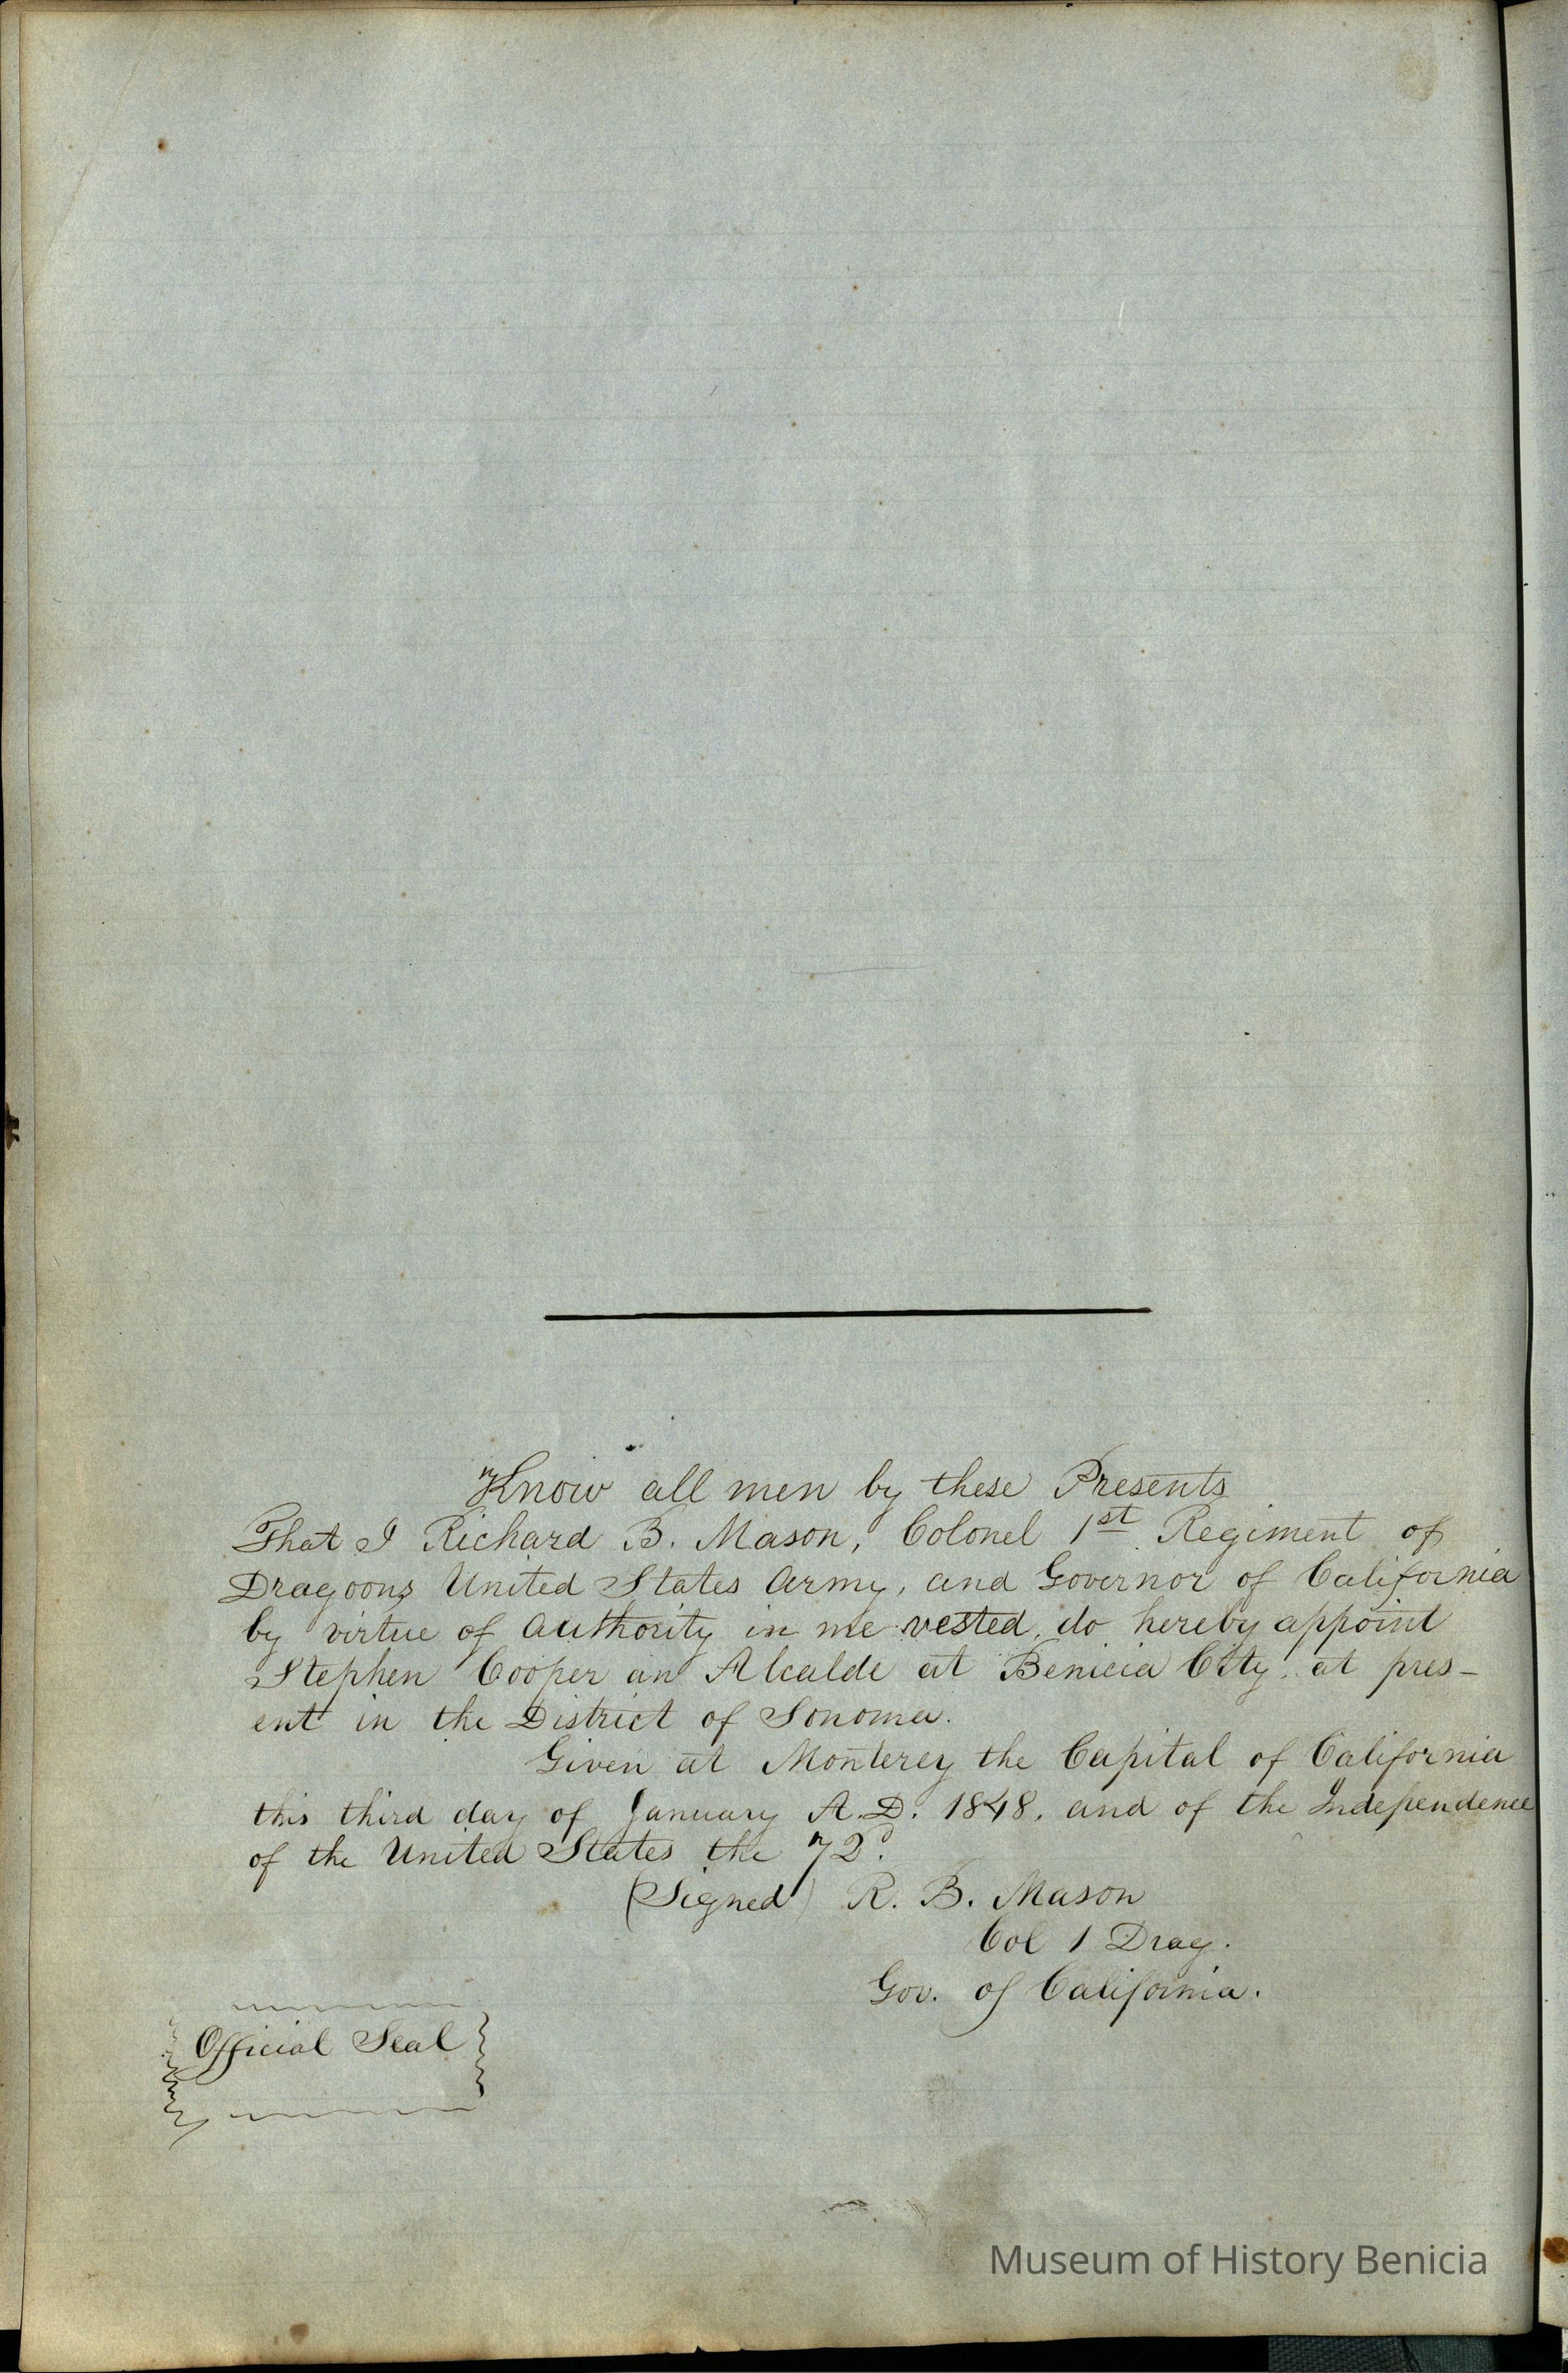 Know all men by these Presents
That I Richard B. Mason, Colonel 1st Regiment of
Dragoons United States Army, and Governor of California
by virtue of authority in me vested, do hereby appoint
Stephen Cooper an Alcalde at Benicia City, at pres-
ent in the District of Sonoma.
Given at Monterey the Capital of California
this third day of January A.D. 1848, and of the Independence
of the United States the 72d.
(Signed) R. B. Mason
Col 1 Drag.
Gov. of California.
Official Seal
Museum of History Benicia